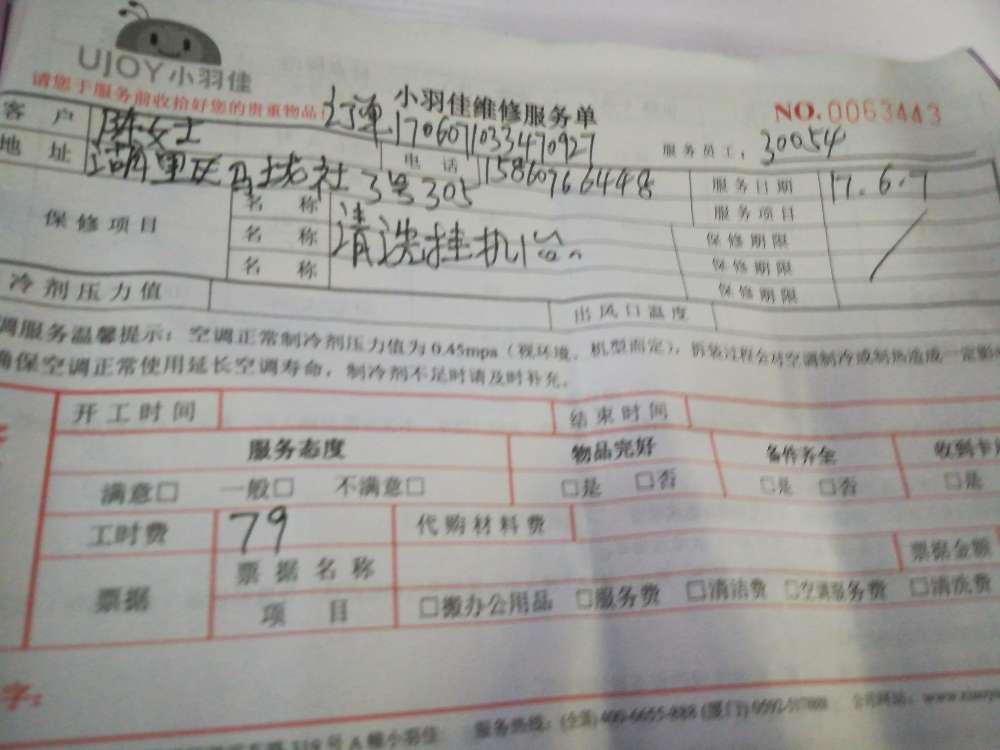 UJOY小羽佳
请您于服务前收拾好您的贵重物品
小羽佳维修服务单
NO.0063443
订单1706071033470927
服务员工: 30054
客户 陈女士
地址 社3号305
电话 15860766448
服务日期 17.6.7
服务项目
保修项目
名称
名称 清洗挂机
名称
保修期限
保修期限
保修期限
冷剂压力值
出风口温度
调服务温馨提示:空调正常制冷剂压力值为0.45mpa(视环境、机型而定),拆装过程会对空调制冷或制热造成一定影
确保空调正常使用延长空调寿命,制冷剂不足时请及时补充。
开工时间
结束时间
服务态度 物品完好 备件齐全 收到卡
满意□ 一般□ 不满意□ □是 □否 □是 □否 □是
工时费 79 代购材料费
票据 票据名称 票据金额
项目 □搬办公用品 □服务费 □清洁费 □空调服务费 □清洗费
字:
318号A幢小羽佳 服务热线:(全国)400-6655-888 (厦门)0592-